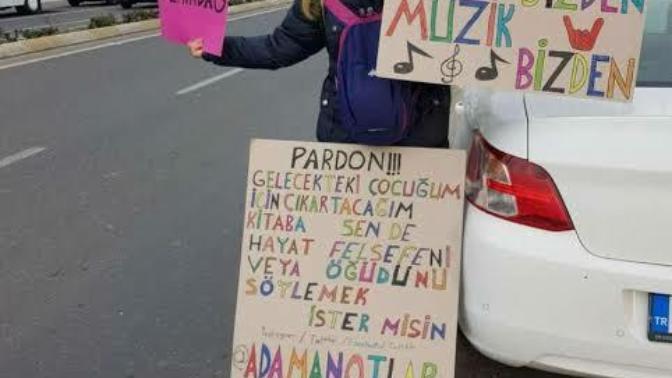 BİZDEN
MÜZİK
BİZDEN
PARDON!!!
GELECEKTEKİ ÇOCUĞUM
İÇİN ÇIKARTACAĞIM
KİTABA SEN DE
HAYAT FELSEFENİ
VEYA ÖĞÜDÜNÜ
SÖYLEMEK
İSTER MİSİN
@ADAMANOTLAR
TR